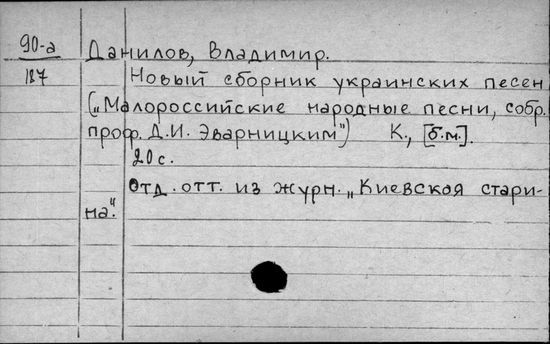 90-а
187
Данилов, Владимир.
Новый сборник украинских песен
(„Малороссийские народные песни, собр.
проф. Д.И. Эварницким") К., [б.м.].
20 с.
Отд. отт. из журн. „Киевская стари-
на".